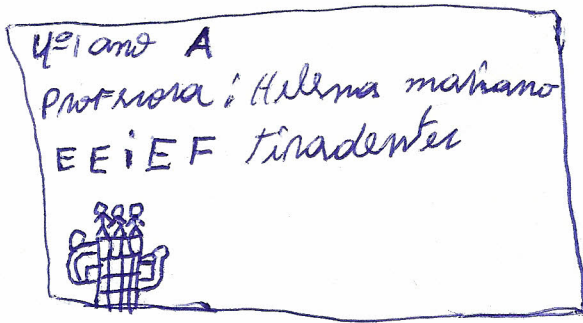 4º ano A
Professora: Helena mariano
EEIEF tiradentes